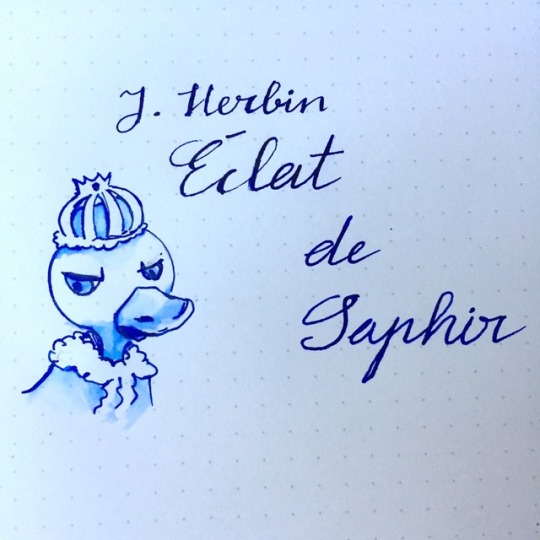 J. Herbin
Éclat
de
Saphir